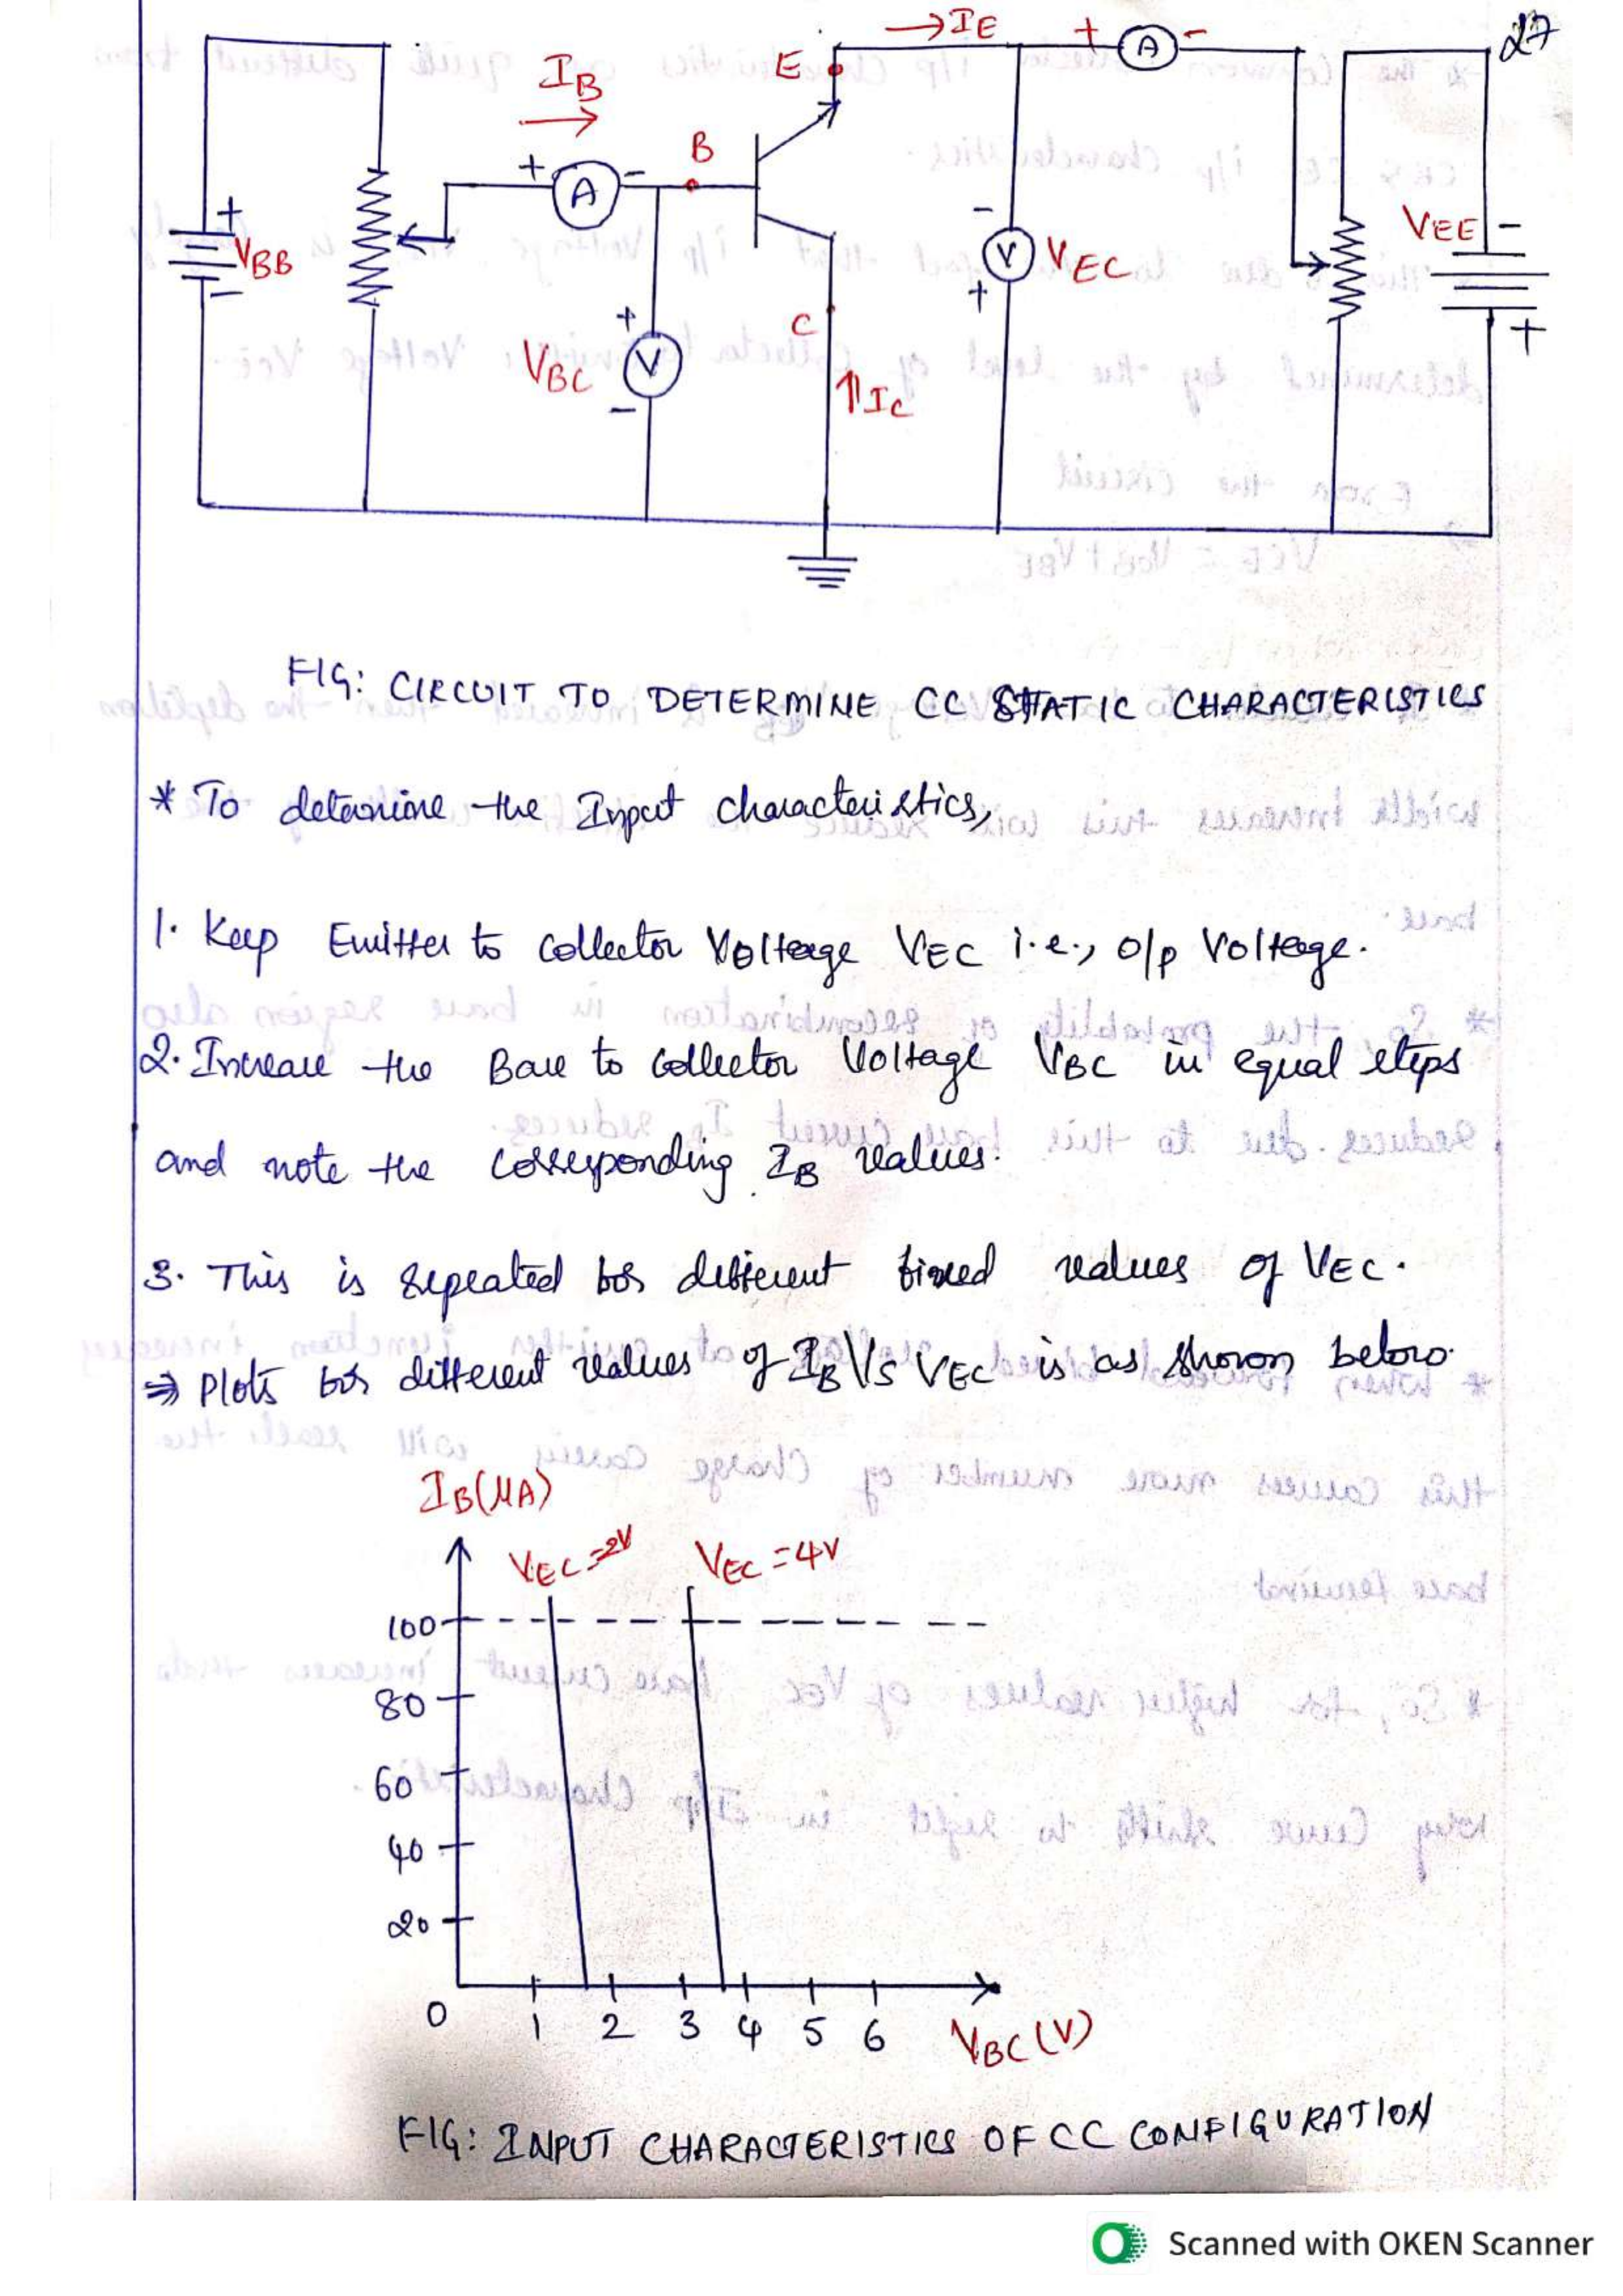 27
→IE
+ A -
E
IB
+ A -
B
+
VBB
-
-
V VEC
+
VEE -
+
C
+
VBC V
-
↑IC
FIG: CIRCUIT TO DETERMINE CC STATIC CHARACTERISTICS
* To determine the Input characteristics,
1. Keep Emitter to collector Voltage VEC i.e., o/p Voltage.
2. Increase the Base to collector Voltage VBC in equal steps
and note the corresponding IB values.
3. This is repeated for different fixed values of VEC.
⇒ Plots for different values of IB Vs VEC is as shown below.
IB(μA)
VEC=2V VEC=4V
100
80
60
40
20
0 1 2 3 4 5 6 VBC(V)
FIG: INPUT CHARACTERISTICS OF CC CONFIGURATION
Scanned with OKEN Scanner